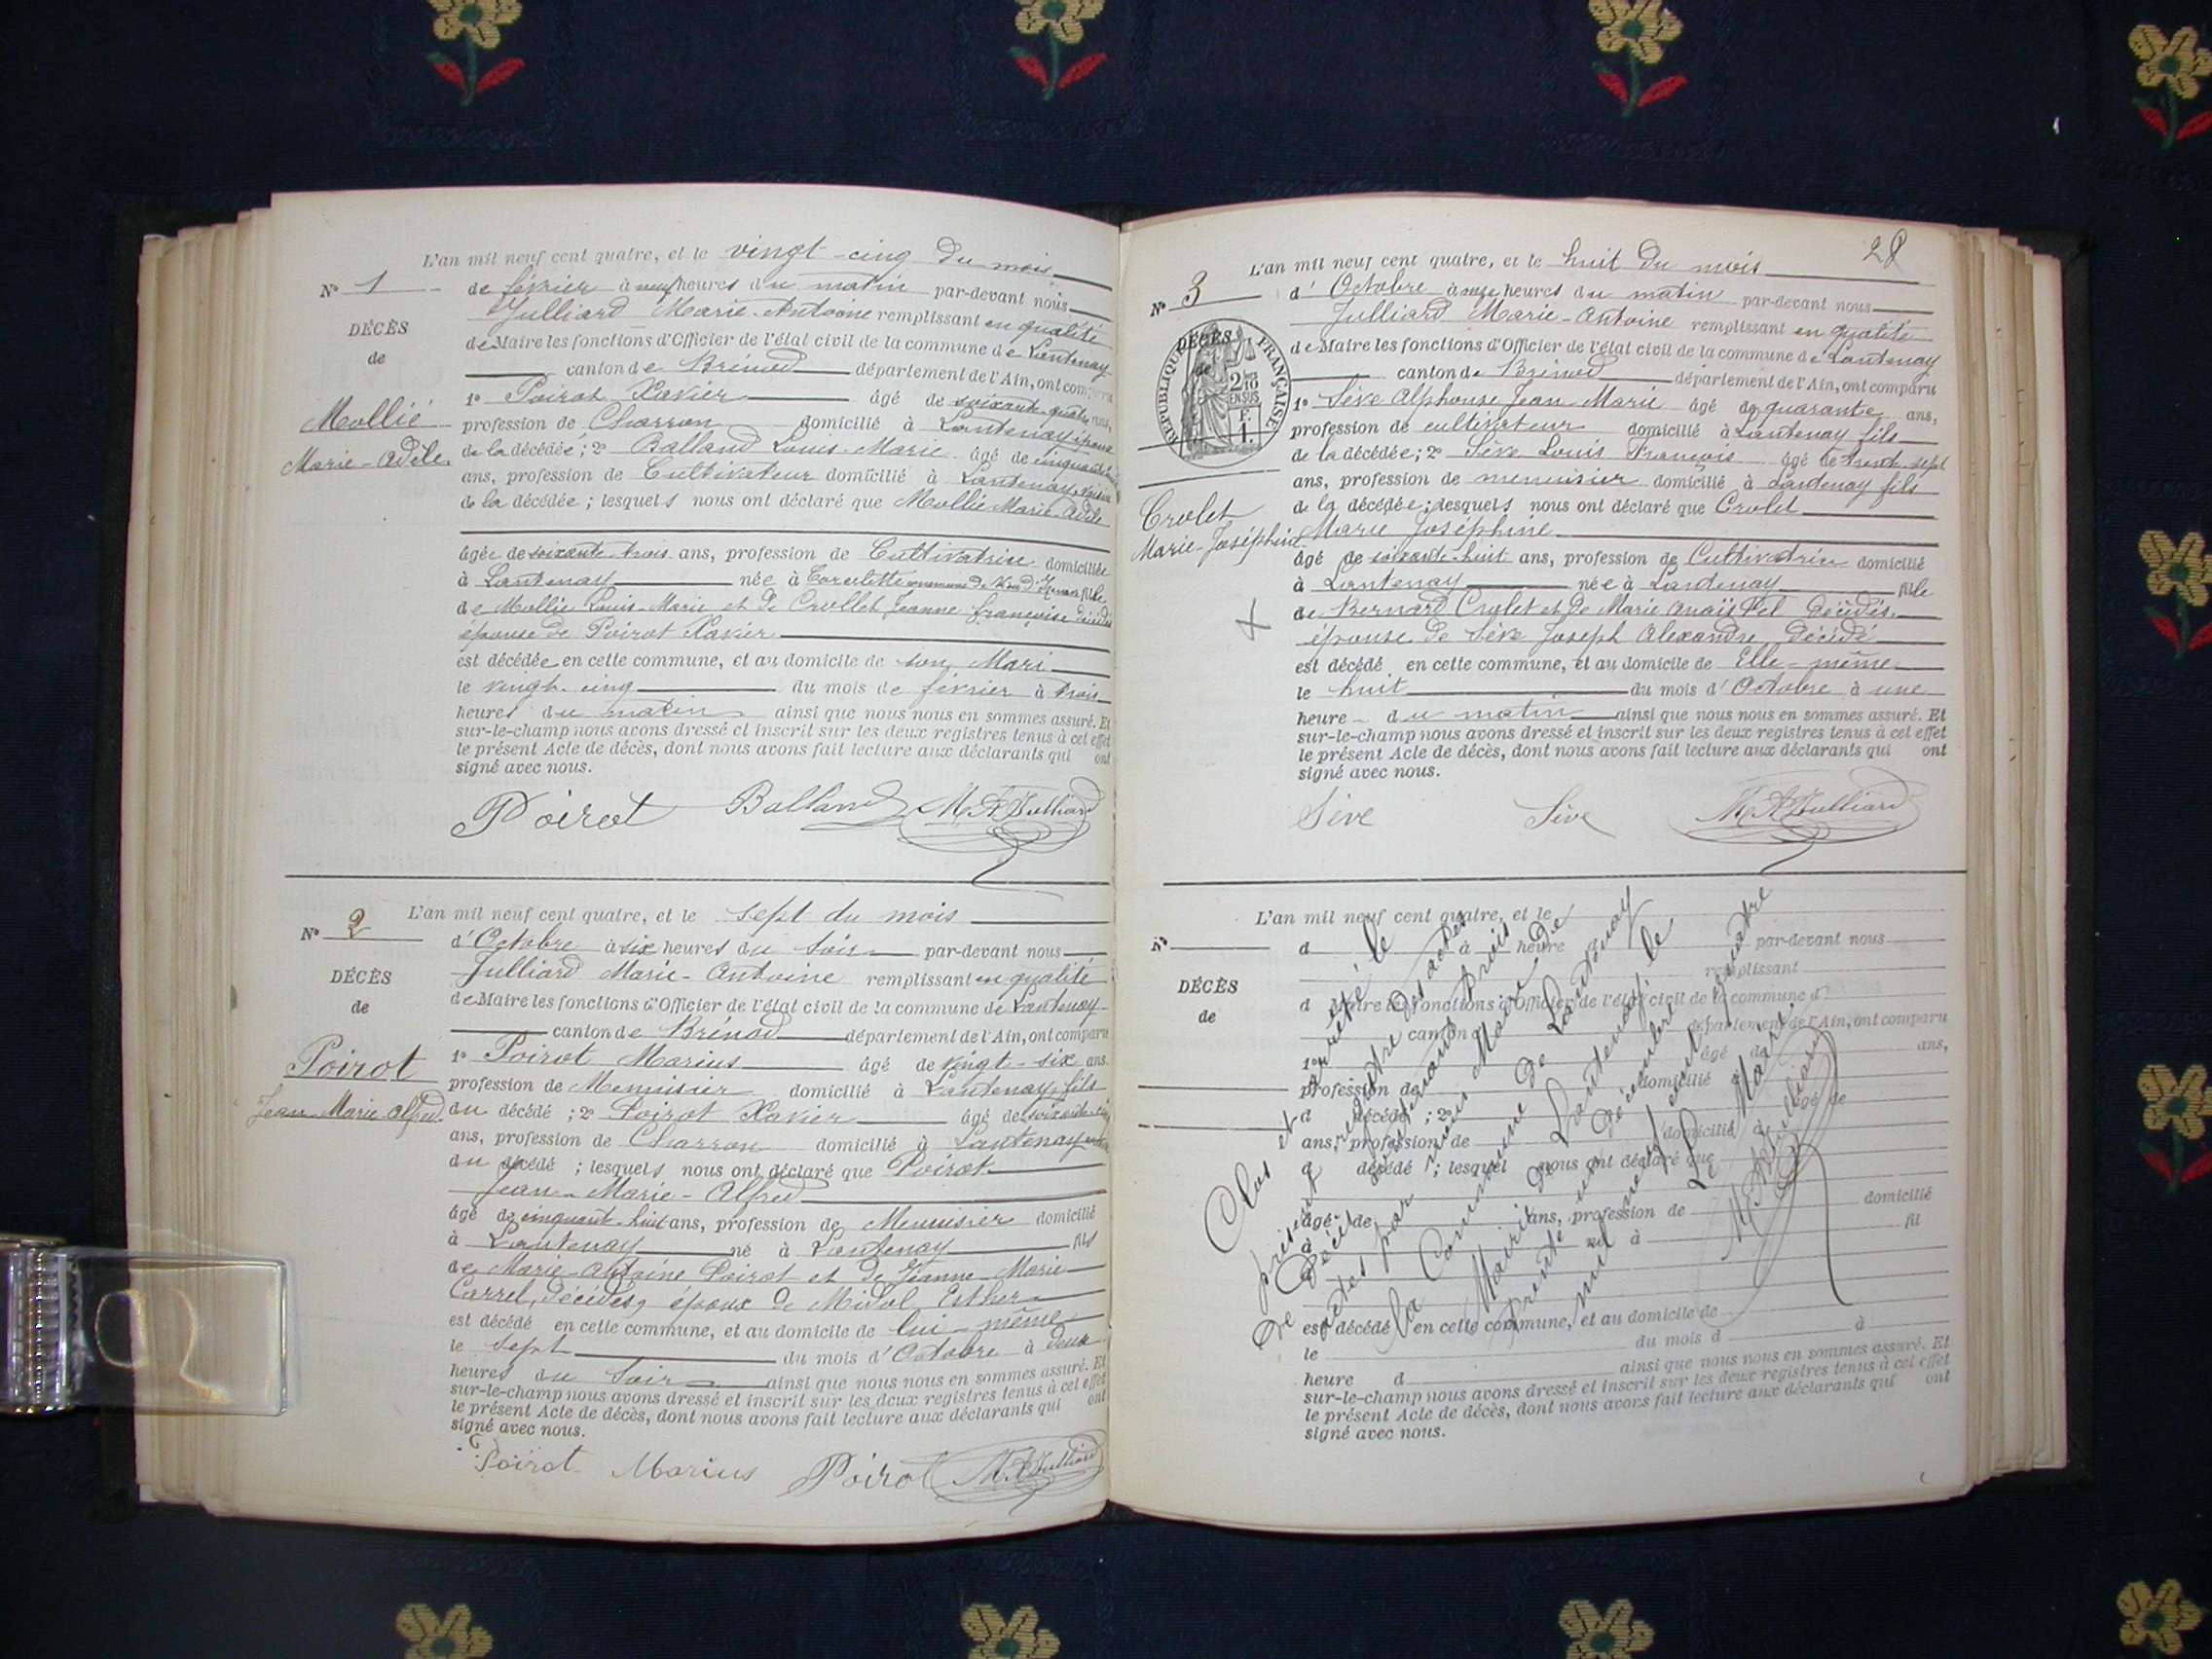 L'an mil neuf cent quatre, et le vingt-cinq du mois
N° 1
de février à neuf heures du matin par-devant nous
Julliard Marie-Antoine remplissant en qualité
DÉCÈS
de Maire les fonctions d'Officier de l'état civil de la commune de Lantenay
de
canton de Brénod département de l'Ain, ont comparu
1° Poirot Xavier âgé de soixante-quatre ans,
Mollié
profession de Charron domicilié à Lantenay époux
Marie-Adèle
de la décédée; 2° Balland Louis-Marie âgé de cinquante
ans, profession de Cultivateur domicilié à Lantenay, voisin
de la décédée; lesquels nous ont déclaré que Mollié Marie Adèle
âgée de soixante-trois ans, profession de Cultivatrice domiciliée
à Lantenay née à commune de fille
de Mollié Louis-Marie et de Crollet Jeanne françoise décédés
épouse de Poirot Xavier
est décédée en cette commune, et au domicile de son Mari
le vingt-cinq du mois de février à trois
heures du matin ainsi que nous nous en sommes assuré. Et
sur-le-champ nous avons dressé et inscrit sur les deux registres tenus à cet effet
le présent Acte de décès, dont nous avons fait lecture aux déclarants qui ont
signé avec nous.
Poirot Balland M. A Julliard
L'an mil neuf cent quatre, et le sept du mois
N° 2
d'Octobre à six heures du soir par-devant nous
Julliard Marie-Antoine remplissant en qualité
DÉCÈS
de Maire les fonctions d'Officier de l'état civil de la commune de Lantenay
de
canton de Brénod département de l'Ain, ont comparu
1° Poirot Marius âgé de vingt-six ans
Poirot
profession de Menuisier domicilié à Lantenay, fils
Jean-Marie-Alfred
du décédé; 2° Poirot Xavier âgé de
ans, profession de Charron domicilié à Lantenay
du décédé; lesquels nous ont déclaré que Poirot
Jean-Marie-Alfred
âgé de cinquante-huit ans, profession de Menuisier domicilié
à Lantenay né à Lantenay fils
de Marie-Antoine Poirot et de Jeanne-Marie
Carrel, décédés, époux de Midol Esther
est décédé en cette commune, et au domicile de lui-même
le sept du mois d'Octobre à deux
heures du soir ainsi que nous nous en sommes assuré. Et
sur-le-champ nous avons dressé et inscrit sur les deux registres tenus à cet effet
le présent Acte de décès, dont nous avons fait lecture aux déclarants qui ont
signé avec nous.
Poirot Marius Poirot M. A Julliard
28
L'an mil neuf cent quatre, et le huit du mois
N° 3
d'Octobre à onze heures du matin par-devant nous
Julliard Marie-Antoine remplissant en qualité
DÉCÈS
de Maire les fonctions d'Officier de l'état civil de la commune de Lantenay
de
canton de Brénod département de l'Ain, ont comparu
RÉPUBLIQUE FRANÇAISE
2/10 EN SUS
F. 1.
1° Sève Alphonse Jean Marie âgé de quarante ans,
profession de cultivateur domicilié à Lantenay fils
de la décédée; 2° Sève Louis François âgé de trente-sept
ans, profession de menuisier domicilié à Lantenay fils
Crolet
de la décédée; lesquels nous ont déclaré que Crolet
Marie-Joséphine
Marie Joséphine
âgé de soixante-huit ans, profession de Cultivatrice domicilié
à Lantenay née à Lantenay fille
de Bernard Crolet et de Marie Anaïs Pel décédés
épouse de Sève Joseph Alexandre, décédé
est décédé en cette commune, et au domicile de Elle-même
le huit du mois d'Octobre à une
heure du matin ainsi que nous nous en sommes assuré. Et
sur-le-champ nous avons dressé et inscrit sur les deux registres tenus à cet effet
le présent Acte de décès, dont nous avons fait lecture aux déclarants qui ont
signé avec nous.
Sève Sève M. A Julliard
L'an mil neuf cent quatre, et le
N°
d à heure par-devant nous
remplissant
DÉCÈS
d Maire les fonctions d'Officier de l'état civil de la commune d
de
canton d département de l'Ain, ont comparu
1° âgé de ans,
profession de domicilié
d décédé; 2° âgé de
ans, profession de domicilié à
d décédé; lesquel nous ont déclaré que
âgé de ans, profession de domicilié
à né à fil
est décédé en cette commune, et au domicile de
le du mois d à
heure d ainsi que nous nous en sommes assuré. Et
sur-le-champ nous avons dressé et inscrit sur les deux registres tenus à cet effet
le présent Acte de décès, dont nous avons fait lecture aux déclarants qui ont
signé avec nous.
Clos et arrêté le
présent registre des actes
de Décès contenant trois
actes par nous Maire de
la Commune de Lantenay
Mairie de Lantenay, le
trente un décembre
mil neuf cent quatre
Le Maire
M. A Julliard